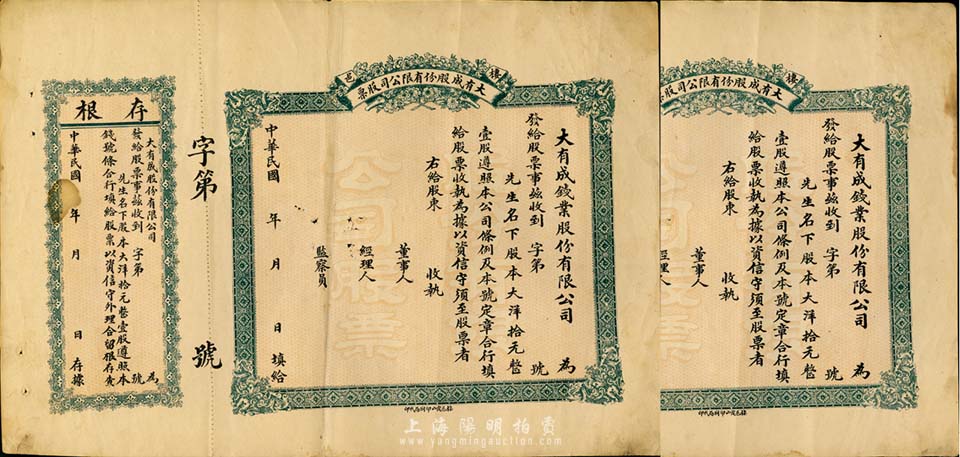 大有成股份有限公司股票
大有成錢業股份有限公司 為
發給股票事茲收到 字第 號
先生名下股本大洋拾元整
壹股遵照本公司條例及本號定章合行填
給股票收執為據以資信守須至股票者
右給股東 收執
董事人
經理人
監察員
中華民國 年 月 日 填給
字第 號
存根
大有成股份有限公司 為
發給股票事茲收到 字第 號
先生名下股本大洋拾元整壹股遵照本
錢號條合行填給股票以資信守外理合留根存查
中華民國 年 月 日 存據
大有成股份有限公司股票
大有成錢業股份有限公司 為
發給股票事茲收到 字第 號
先生名下股本大洋拾元整
壹股遵照本公司條例及本號定章合行填
給股票收執為據以資信守須至股票者
右給股東 收執
董事人
經理人
公司股票
上海陽明拍賣
www.yangmingauction.com